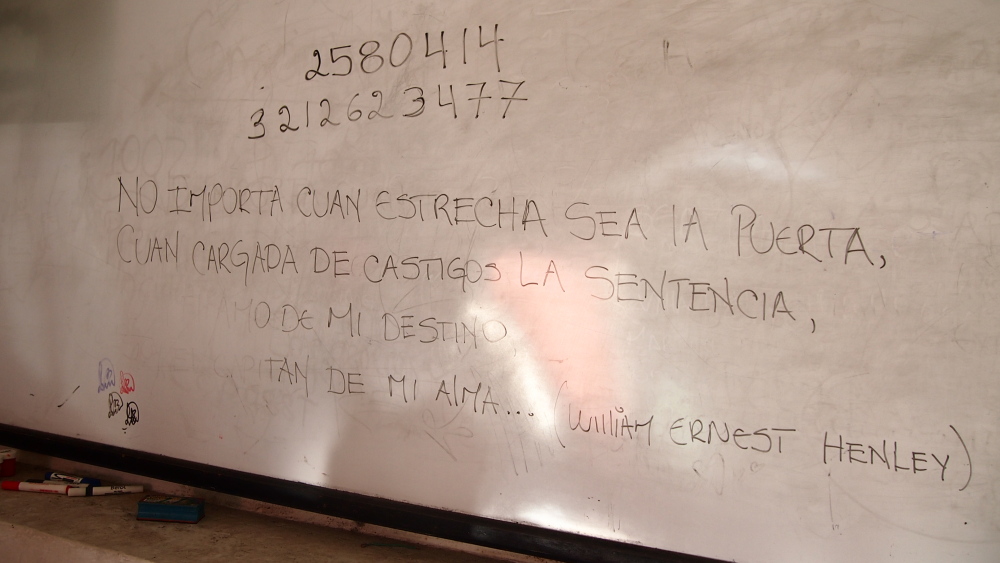 2580414
3212623477
NO IMPORTA CUAN ESTRECHA SEA LA PUERTA,
CUAN CARGADA DE CASTIGOS LA SENTENCIA,
AMO DE MI DESTINO,
TAN DE MI ALMA... (WILLIAM ERNEST HENLEY)